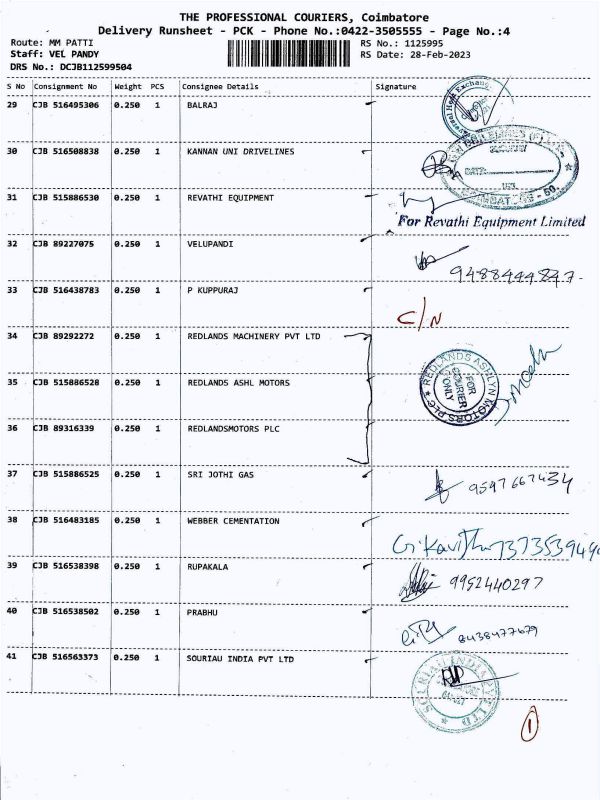 THE PROFESSIONAL COURIERS, Coimbatore
Delivery Runsheet - PCK - Phone No.:0422-3505555 - Page No.:4
Route: MM PATTI RS No.: 1125995
Staff: VEL PANDY RS Date: 28-Feb-2023
DRS No.: DCJB112599504
S No Consignment No Weight PCS Consignee Details Signature
29 CJB 516495306 0.250 1 BALRAJ
30 CJB 516508838 0.250 1 KANNAN UNI DRIVELINES
SECURITY
DATE:
31 CJB 515886530 0.250 1 REVATHI EQUIPMENT
For Revathi Equipment Limited
32 CJB 89227075 0.250 1 VELUPANDI
9488444847
33 CJB 516438783 0.250 1 P KUPPURAJ
C/N
34 CJB 89292272 0.250 1 REDLANDS MACHINERY PVT LTD
35 CJB 515886528 0.250 1 REDLANDS ASHL MOTORS
REDLANDS ASHLYN MOTORS PLC
FOR
COURIER
ONLY
36 CJB 89316339 0.250 1 REDLANDSMOTORS PLC
37 CJB 515886525 0.250 1 SRI JOTHI GAS
9597667434
38 CJB 516483185 0.250 1 WEBBER CEMENTATION
39 CJB 516538398 0.250 1 RUPAKALA
9952440297
40 CJB 516538502 0.250 1 PRABHU
8438477679
41 CJB 516563373 0.250 1 SOURIAU INDIA PVT LTD
SOURIAU INDIA PVT LTD
1